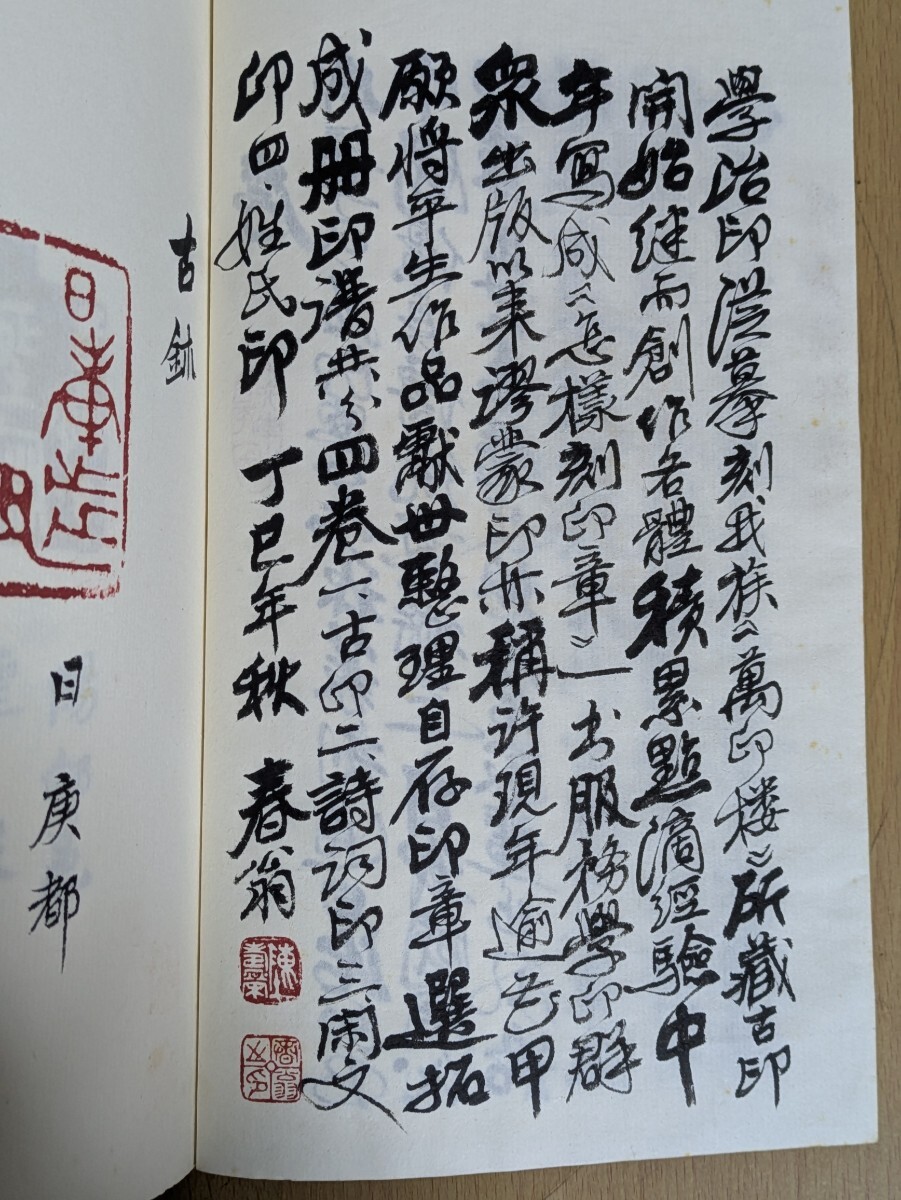 學治印從摹刻我族《萬印楼》所藏古印
開始継而創作各體積累點滴經驗中
年寫成《怎樣刻印章》一书服務學印群
衆出版以来謬蒙印林稱许現年逾花甲
願将平生作品獻世整理自存印章選拓
成册印谱共分四卷一、古印二、詩词印三、闲文
印四、姓氏印 丁巳年秋 春翁
古鉥
日庚都